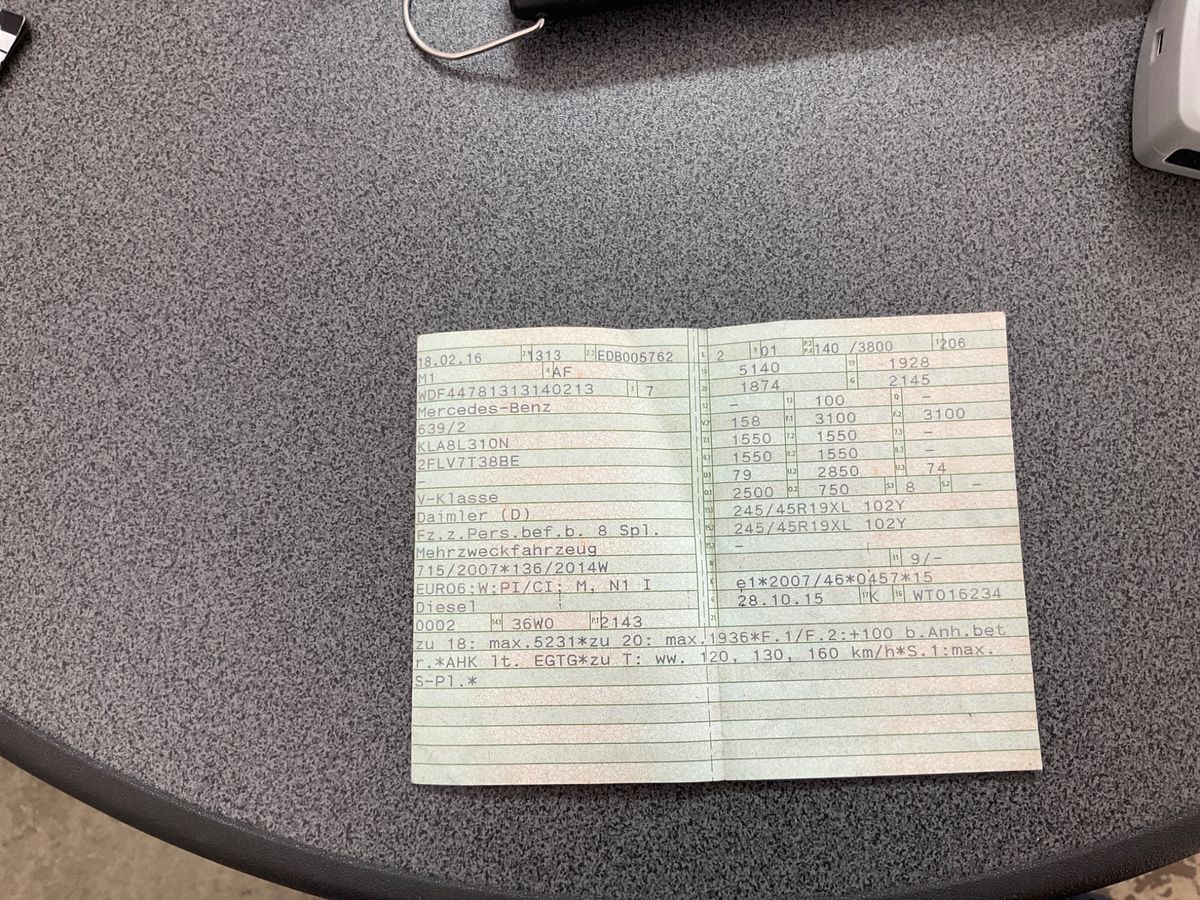 18.02.16 2.1 1313 2.2 EDB005762
M1 4 AF
WDF44781313140213 3 7
Mercedes-Benz
639/2
KLA8L310N
2FLV7T38BE
-
V-Klasse
Daimler (D)
Fz.z.Pers.bef.b. 8 Spl.
Mehrzweckfahrzeug
715/2007*136/2014W
EURO6;W;PI/CI; M, N1 I
Diesel
0002 14.1 36W0 P.1 2143
L 2 9 01 P.2 P.4 140 /3800 T 206
18 5140 19 1928
20 1874 G 2145
12 - 13 100 Q -
V.7 158 F.1 3100 F.2 3100
7.1 1550 7.2 1550 7.3 -
8.1 1550 8.2 1550 8.3 -
U.1 79 U.2 2850 U.3 74
O.1 2500 O.2 750 S.1 8 S.2 -
15.1 245/45R19XL 102Y
15.2 245/45R19XL 102Y
15.3 -
R 11 9/-
K e1*2007/46*0457*15
6 28.10.15 17 K 16 WT016234
21
zu 18: max.5231*zu 20: max.1936*F.1/F.2:+100 b.Anh.bet
r.*AHK lt. EGTG*zu T: ww. 120, 130, 160 km/h*S.1:max.
S-Pl.*